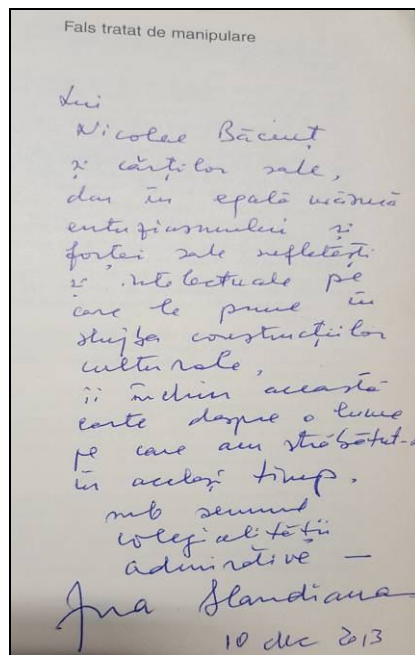 Fals tratat de manipulare
Lui
Nicolae Băciuț
și cărților sale,
dar în egală măsură
entuziasmului și
forței sale sufletești
și intelectuale pe
care le pune în
slujba construcțiilor
culturale,
îi închin această
carte despre o lume
pe care am străbătut-o
în același timp.
sub semnul
colegialității
admirative —
Ana Blandiana
10 dec 2013